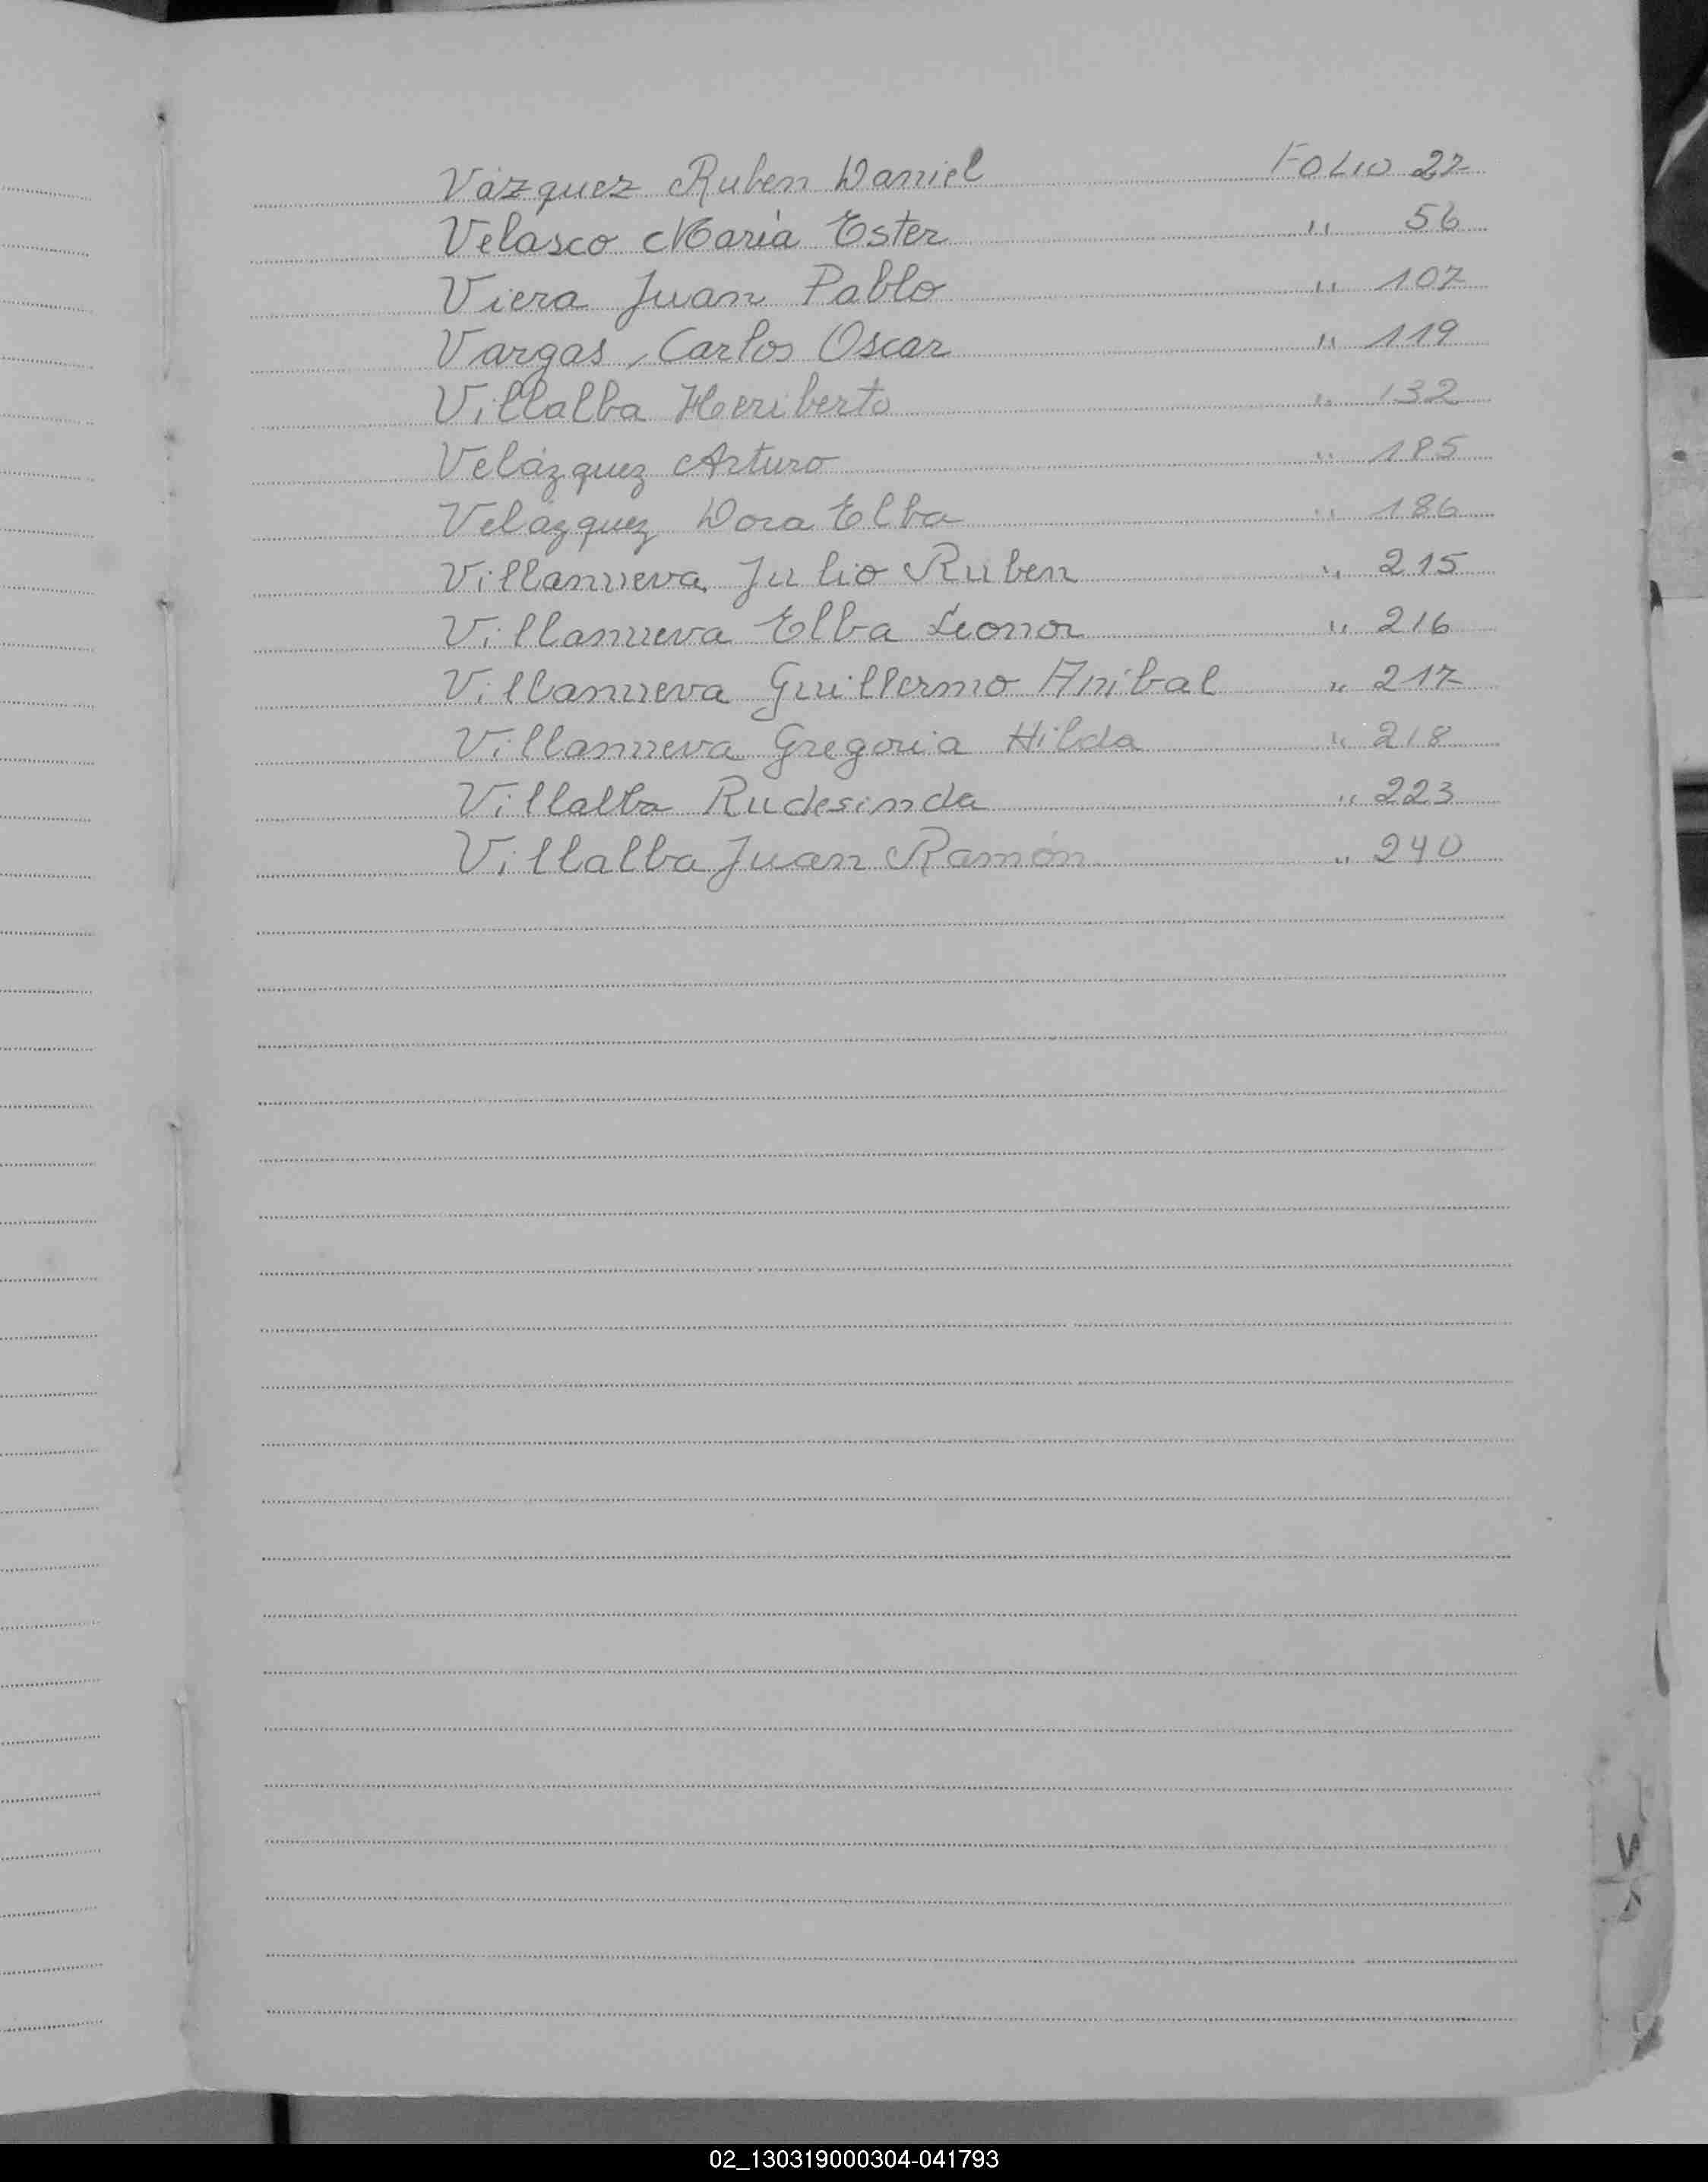 Vázquez Ruben Daniel FOLIO 27
Velasco María Ester " 56
Viera Juan Pablo " 107
Vargas, Carlos Oscar " 119
Villalba Heriberto " 132
Velázquez Arturo " 185
Velázquez Dora Elba " 186
Villanueva Julio Ruben " 215
Villanueva Elba Leonor " 216
Villanueva Guillermo Anibal " 217
Villanueva Gregoria Hilda " 218
Villalba Rudesinda " 223
Villalba Juan Ramón " 240
V
02_130319000304-041793